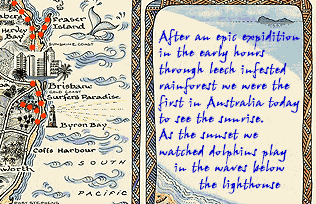 Fraser
Island
Hervey
Bay
SUNSHINE COAST
Brisbane
GOLD COAST
Surfers Paradise
Byron Bay
Coffs Harbour
SOUTH
PACIFIC
After an epic expidition
in the early hours
through leech infested
rainforest we were the
first in Australia today
to see the sunrise.
As the sunset we
watched dolphins play
in the waves below
the lighthouse